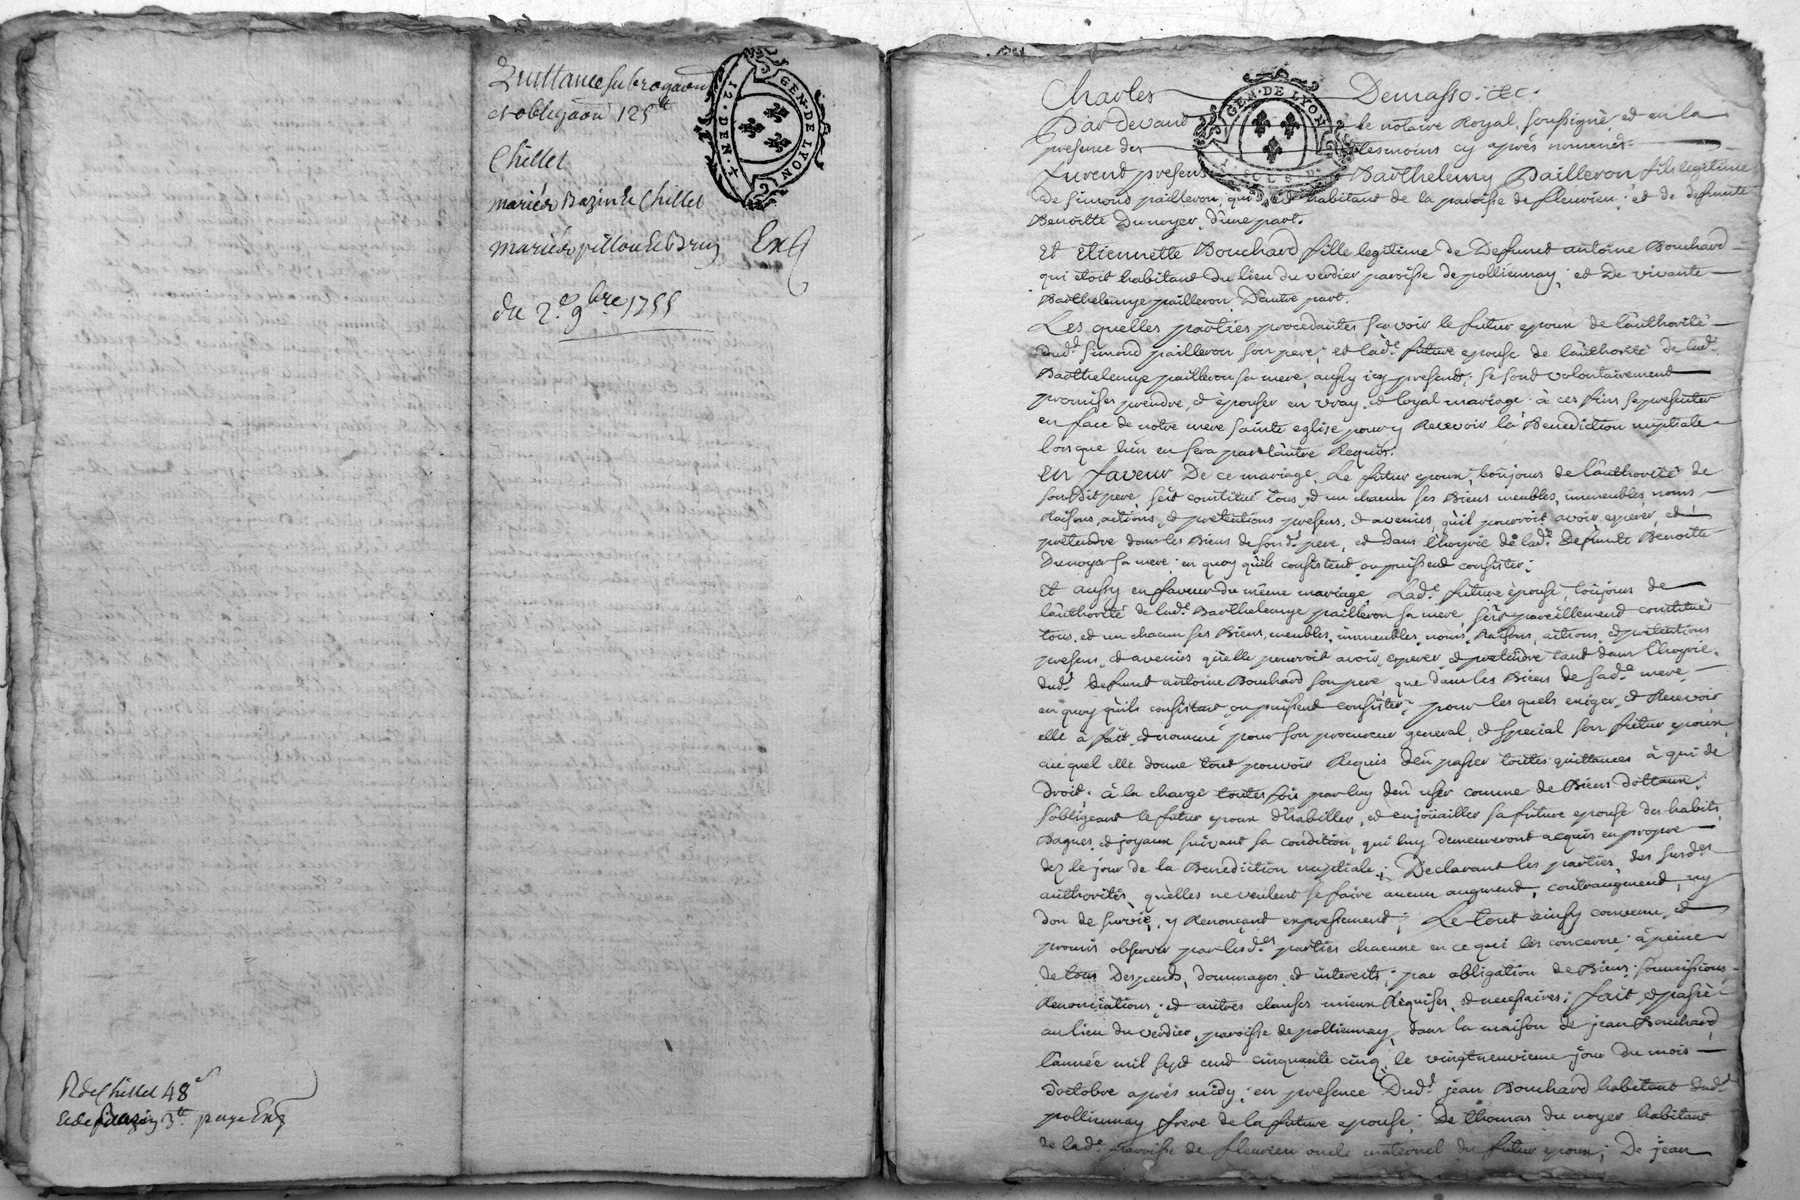 Quittance subrogaōn
et obligāon 125ᵗᵗ
Chillet
mariés Bazin & Chillet
mariés pillon & Brun Exé
du 2.ᵉ 9ᵇʳᵉ 1755
GEN·DE LYON
12·DEN·
R de Chillet 48ˢ
Et de Bazin 3ᵗᵗ
Charles Demasso. &c.
GEN·DE LYON
Pardevant le notaire Royal, soussigné, et en la
presence des tesmoins cy aprés nommés.
furent presens Barthelemy Pailleron fils legitime
de simond pailleron, qui est habitant de la paroisse de fleurieu; et de defunte
Benoitte Dunoyer, d'une part.
Et Etiennette Bouchard fille legitime de Defunct antoine Bouchard
qui etoit habitant du lieu du verdier paroisse de pollionnay; et de vivante
Barthelemye pailleron D'autre part.
Les quelles parties procedantes sçavoir le futur epoux de l'authorité
dud.ᵗ simond pailleron son pere; et lad.ᵉ future epouse de l'authorité de lad.ᵉ
Barthelemye pailleron sa mere, aussy icy presents; se sont volontairement
promises prendre, et épouser en vray, et loyal mariage: à ces fins se presenter
en face de notre mere sainte eglise pour y Recevoir la Benediction nuptiale
lorsque l'un en sera par l'autre Requis.
En faveur De ce mariage, Le futur epoux, toujours de l'authorité de
sondit pere, s'est constitué tous, et un chacun ses Biens meubles, immeubles, noms
Raisons, actions, et pretentions presens, et avenirs, qu'il pourroit avoir, esperer, et
pretendre dans les Biens de sond.ᵗ pere, et dans l'hoyrie de lad.ᵉ Defunte Benoitte
Dunoyer sa mere; en quoy qu'ils consistent ou puissent consister;
Et aussy en faveur du même mariage, Lad.ᵉ future épouse, toujours de
l'authorité de lad.ᵉ Barthelemye pailleron sa mere, s'est pareillement constituée
tous, et un chacun ses Biens, meubles, immeubles, noms, Raisons, actions, et pretentions
presens, et avenirs qu'elle pourroit avoir, esperer et pretendre tant dans l'hoyrie
dud.ᵗ defunt antoine Bouchard son pere, que dans les Biens de sad.ᵉ mere,
en quoy qu'ils consistent, ou puissent consister; pour les quels exiger, et Recevoir
elle a fait, et nommé pour son procureur general, et special son futur epoux
au quel elle donne tout pouvoir Requis d'en passer toutes quittances à qui de
droit; à la charge toutes fois par luy d'en user comme de Biens dottaux;
s'obligeant le futur epoux d'habiller, et enjoüailler sa future epouse des habits,
Bagues, et joyaux suivant sa condition, qui luy demeureront acquis en propre
dez le jour de la Benediction nuptiale; Declarant les parties, des susd.ᵉˢ
authorités, qu'elles ne veulent se faire aucun augment, contraugment, ny
don de survie, y Renonçant expressement; Le tout ainsy convenu, et
promis observer par lesd.ᵉˢ parties chacune en ce qui les concerne: à peine
de tous Despends, dommages, et interests; par obligation de Biens, soumissions
Renonciations; et autres clauses mieux Requises, et necessaires; fait, et passé
au lieu du verdier, paroisse de pollionnay, dans la maison de jean Bouchard,
l'année mil sept cent cinquante cinq, le vingtneuvieme jour du mois
d'octobre après midy; en presence Dud.ᵗ jean Bouchard habitant dud.ᵗ
pollionnay frere de la future epouse; De thomas du noyer habitant
de lad.ᵉ paroisse de fleurieu oncle maternel du futur epoux; De jean